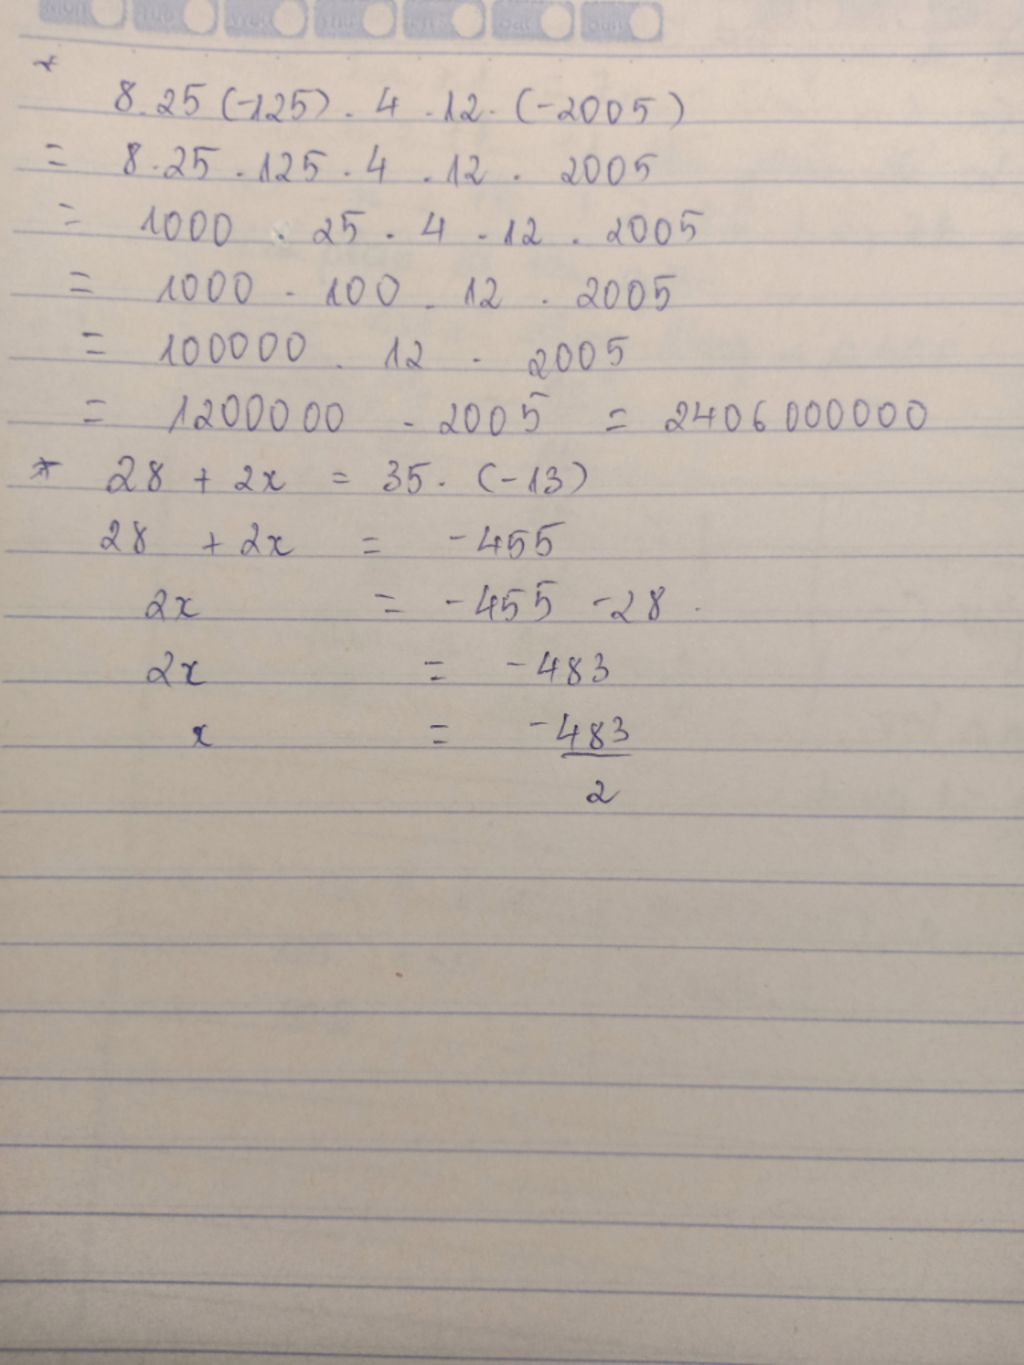 Mon Tue Wed Thu Fri Sat Sun
* 8.25(-125).4.12.(-2005)
= 8.25.125.4.12.2005
= 1000.25.4.12.2005
= 1000.100.12.2005
= 100000.12.2005
= 1200000.2005 = 2406000000
* 28 + 2x = 35.(-13)
28 + 2x = -455
2x = -455 -28.
2x = -483
x = -483
2